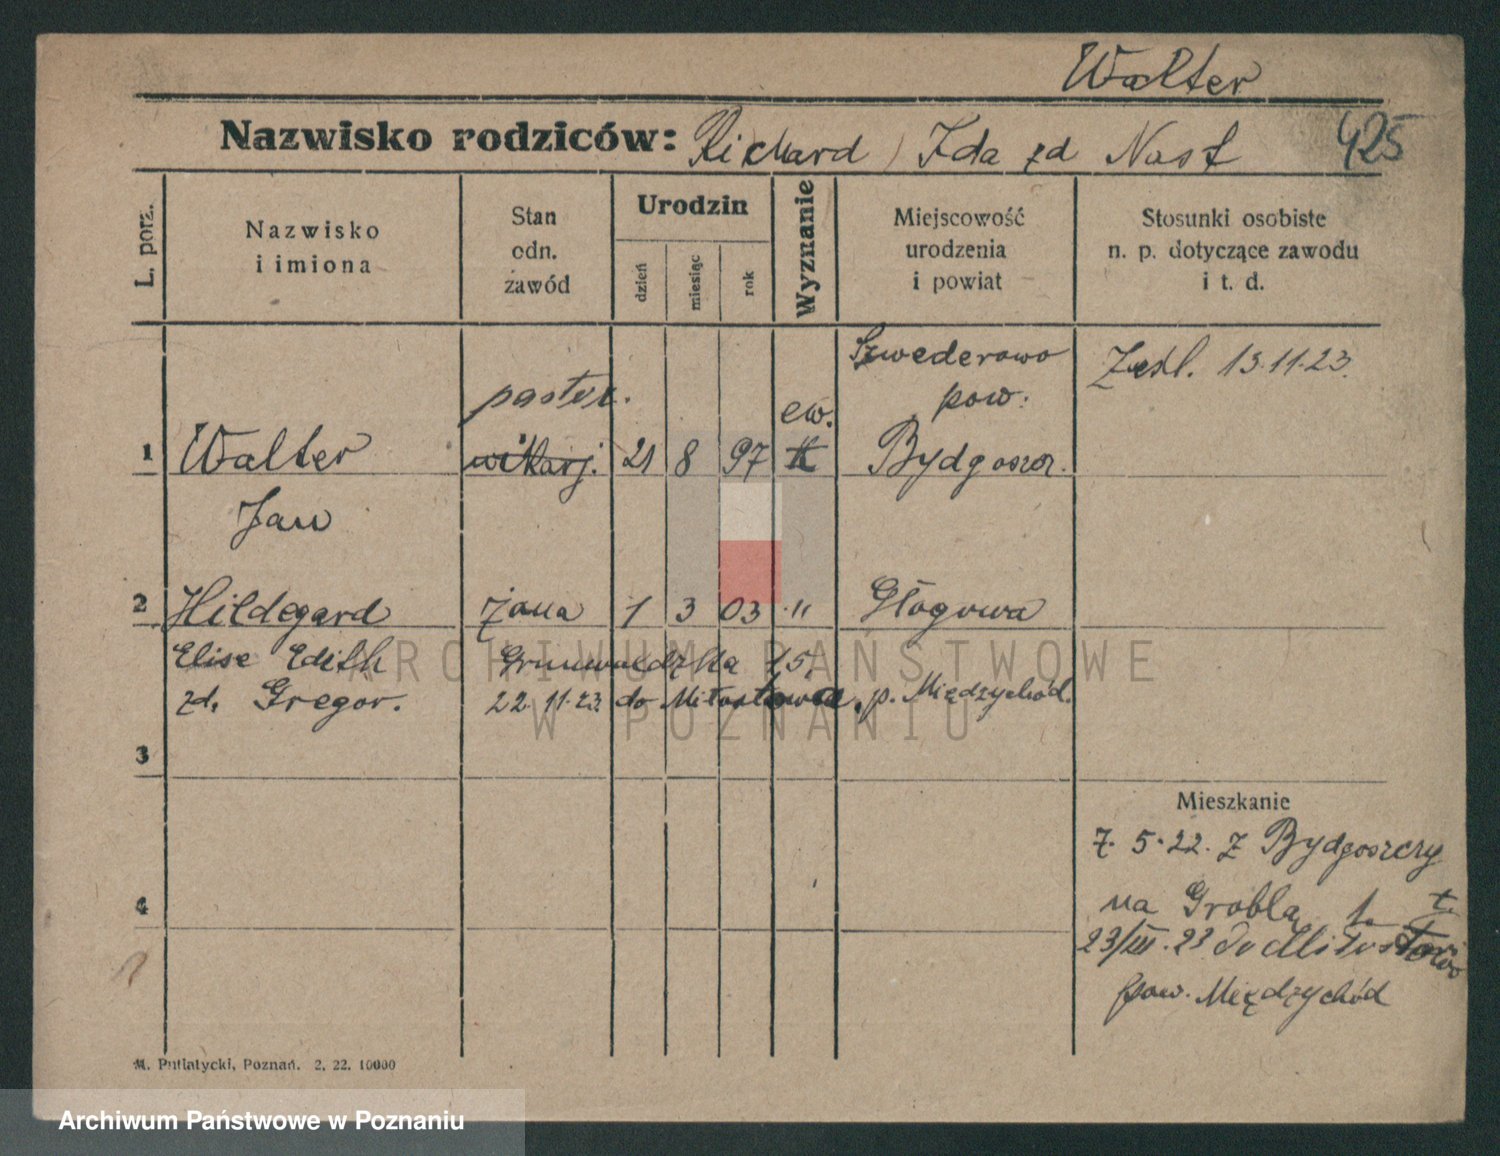 Walter
Nazwisko rodziców: Richard / Ida zd Nast 425
L. porz.
Nazwisko
i imiona
Stan
odn.
zawód
Urodzin
dzień
miesiąc
rok
Wyznanie
Miejscowość
urodzenia
i powiat
Stosunki osobiste
n. p. dotyczące zawodu
i t. d.
Szwederowo
pastor. pow. Zaśl. 13.11.23.
ew.
1 Walter wikarj. 21 8 97 Bydgoszcz.
Jan
2 Hildegard żona 1 3 03 " Głogowa
Elise Edith Grunwaldzka 15,
zd. Gregor. 22.11.23. do Miłostowa, p. Międzychód.
3
Mieszkanie
7. 5. 22. z Bydgoszczy
na Grobla 1.
4
23/III. 23 do Miłostowo
pow. Międzychód
M. Putiatycki, Poznań. 2, 22. 10000
ARCHIWUM PAŃSTWOWE
W POZNANIU
Archiwum Państwowe w Poznaniu